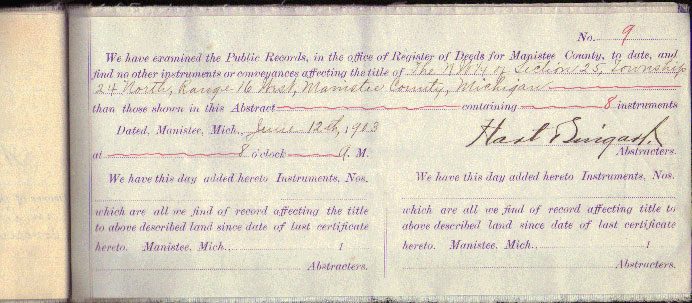 No. 9
We have examined the Public Records, in the office of Register of Deeds for Manistee County, to date, and
find no other instruments or conveyances affecting the title of The of Section 25, Township
24 North, Range 16 West, Manistee County, Michigan
than those shown in this Abstract containing 8 instruments
Dated, Manistee, Mich., June 12th, 1903
at 8 o'clock A. M.
Abstracters.
We have this day added hereto Instruments, Nos.
which are all we find of record affecting the title
to above described land since date of last certificate
hereto. Manistee, Mich., 1
Abstracters.
We have this day added hereto Instruments, Nos.
which are all we find of record affecting the title
to above described land since date of last certificate
hereto. Manistee, Mich., 1
Abstracters.